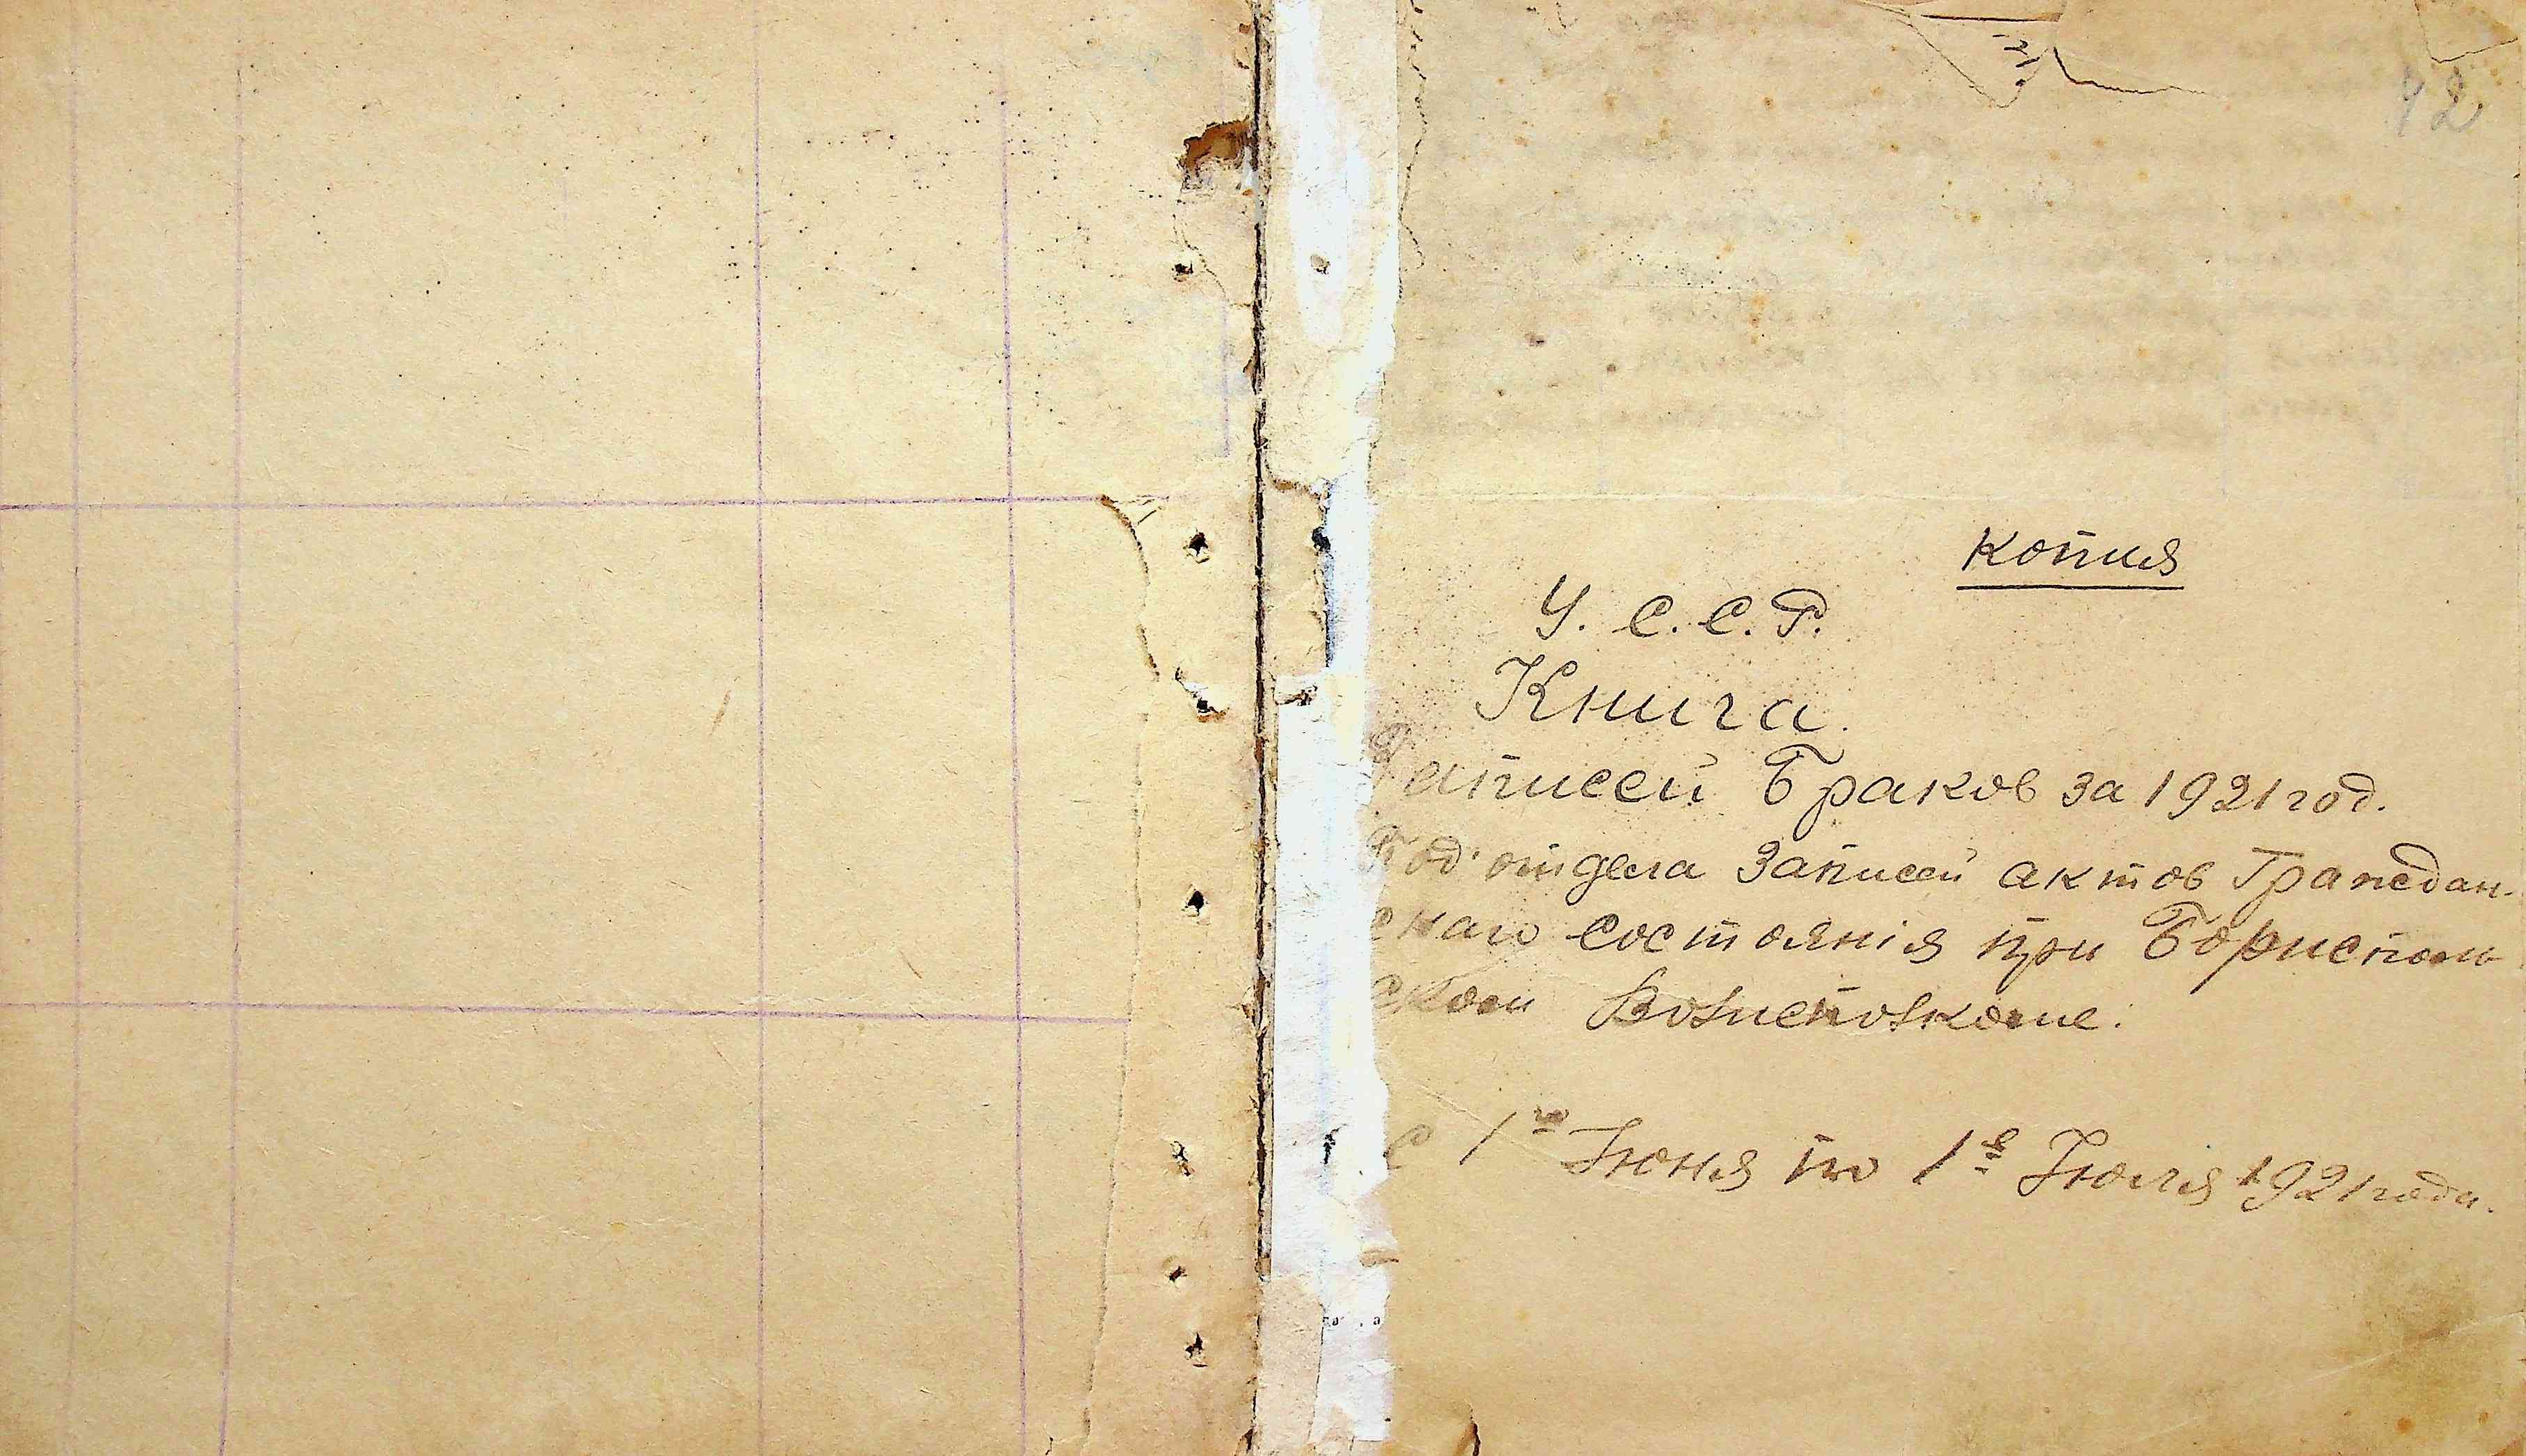 42
копия
У. С. С. Р.
Книга.
Записей Браков за 1921 год.
Под'отдела Записей актов Граждан-
скаго состоянія при Борисполь
ском Волисполкоме.
С 1го Іюня по 1е Іюля 1921 года.